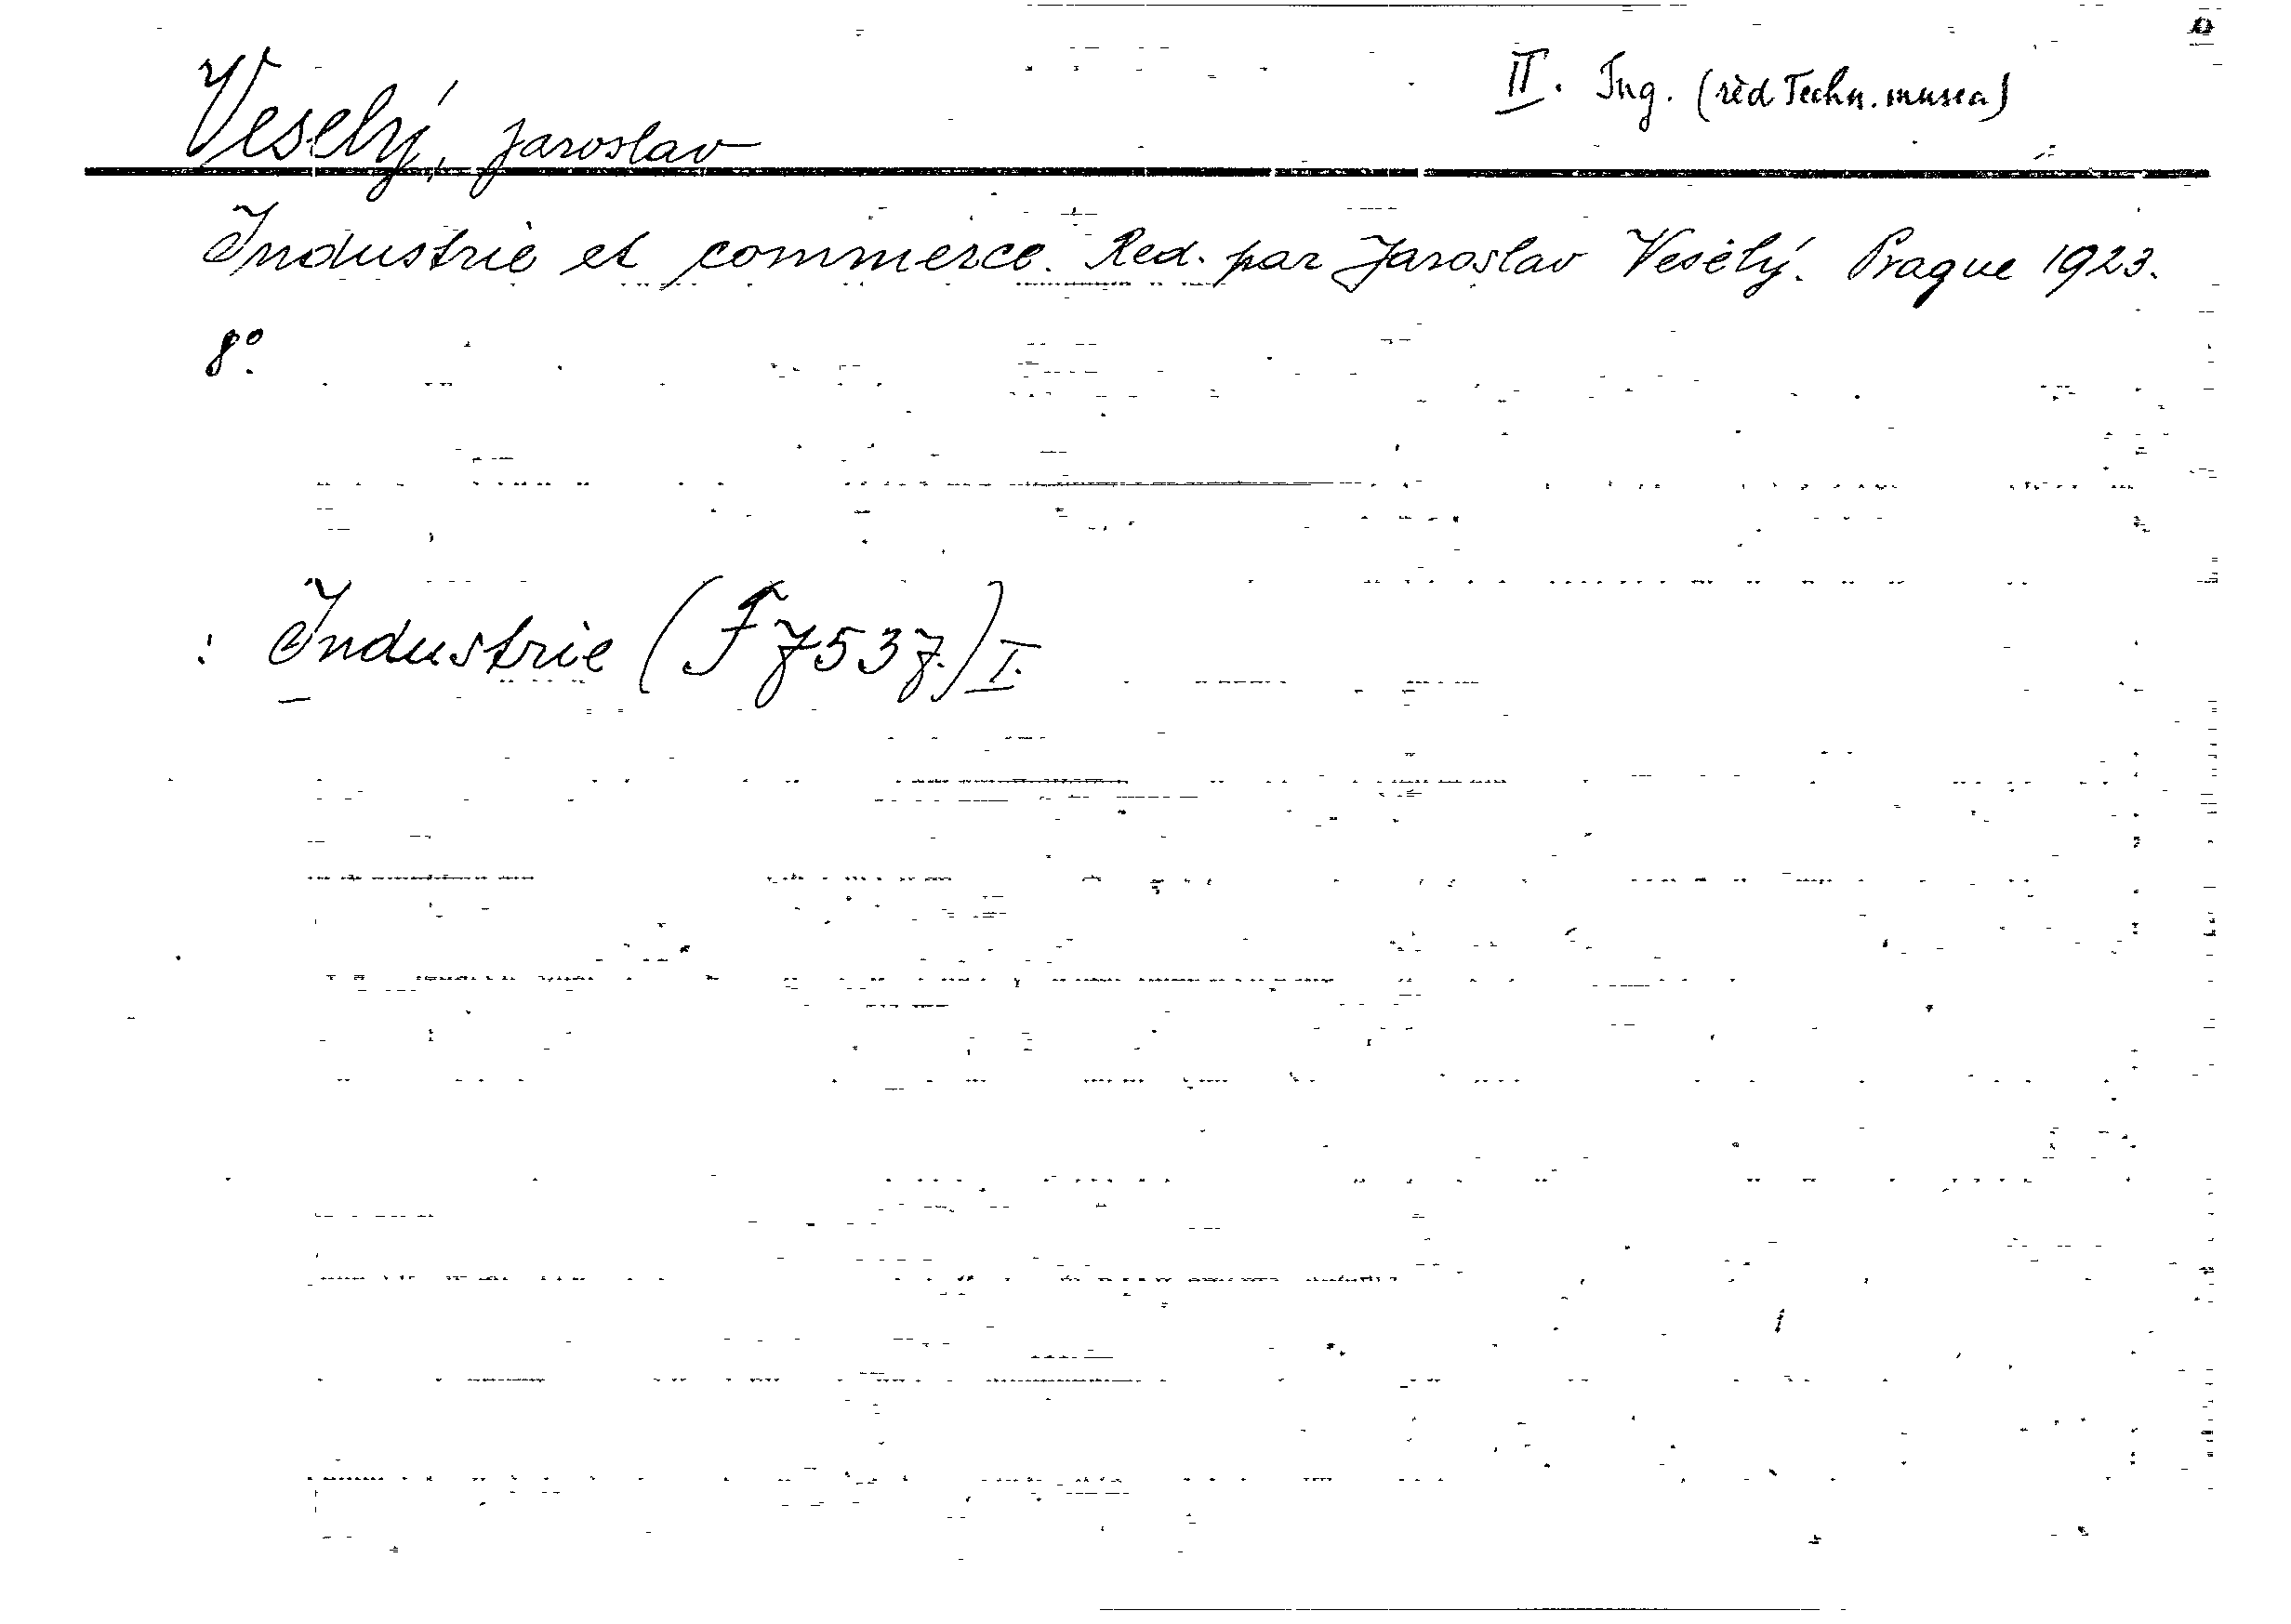 Veselý, Jaroslav
II. Ing. (řed Techn. musea)
Industrie et commerce. Red. par Jaroslav Veselý. Prague 1923.
8°.
: Industrie (F 7537.) I.